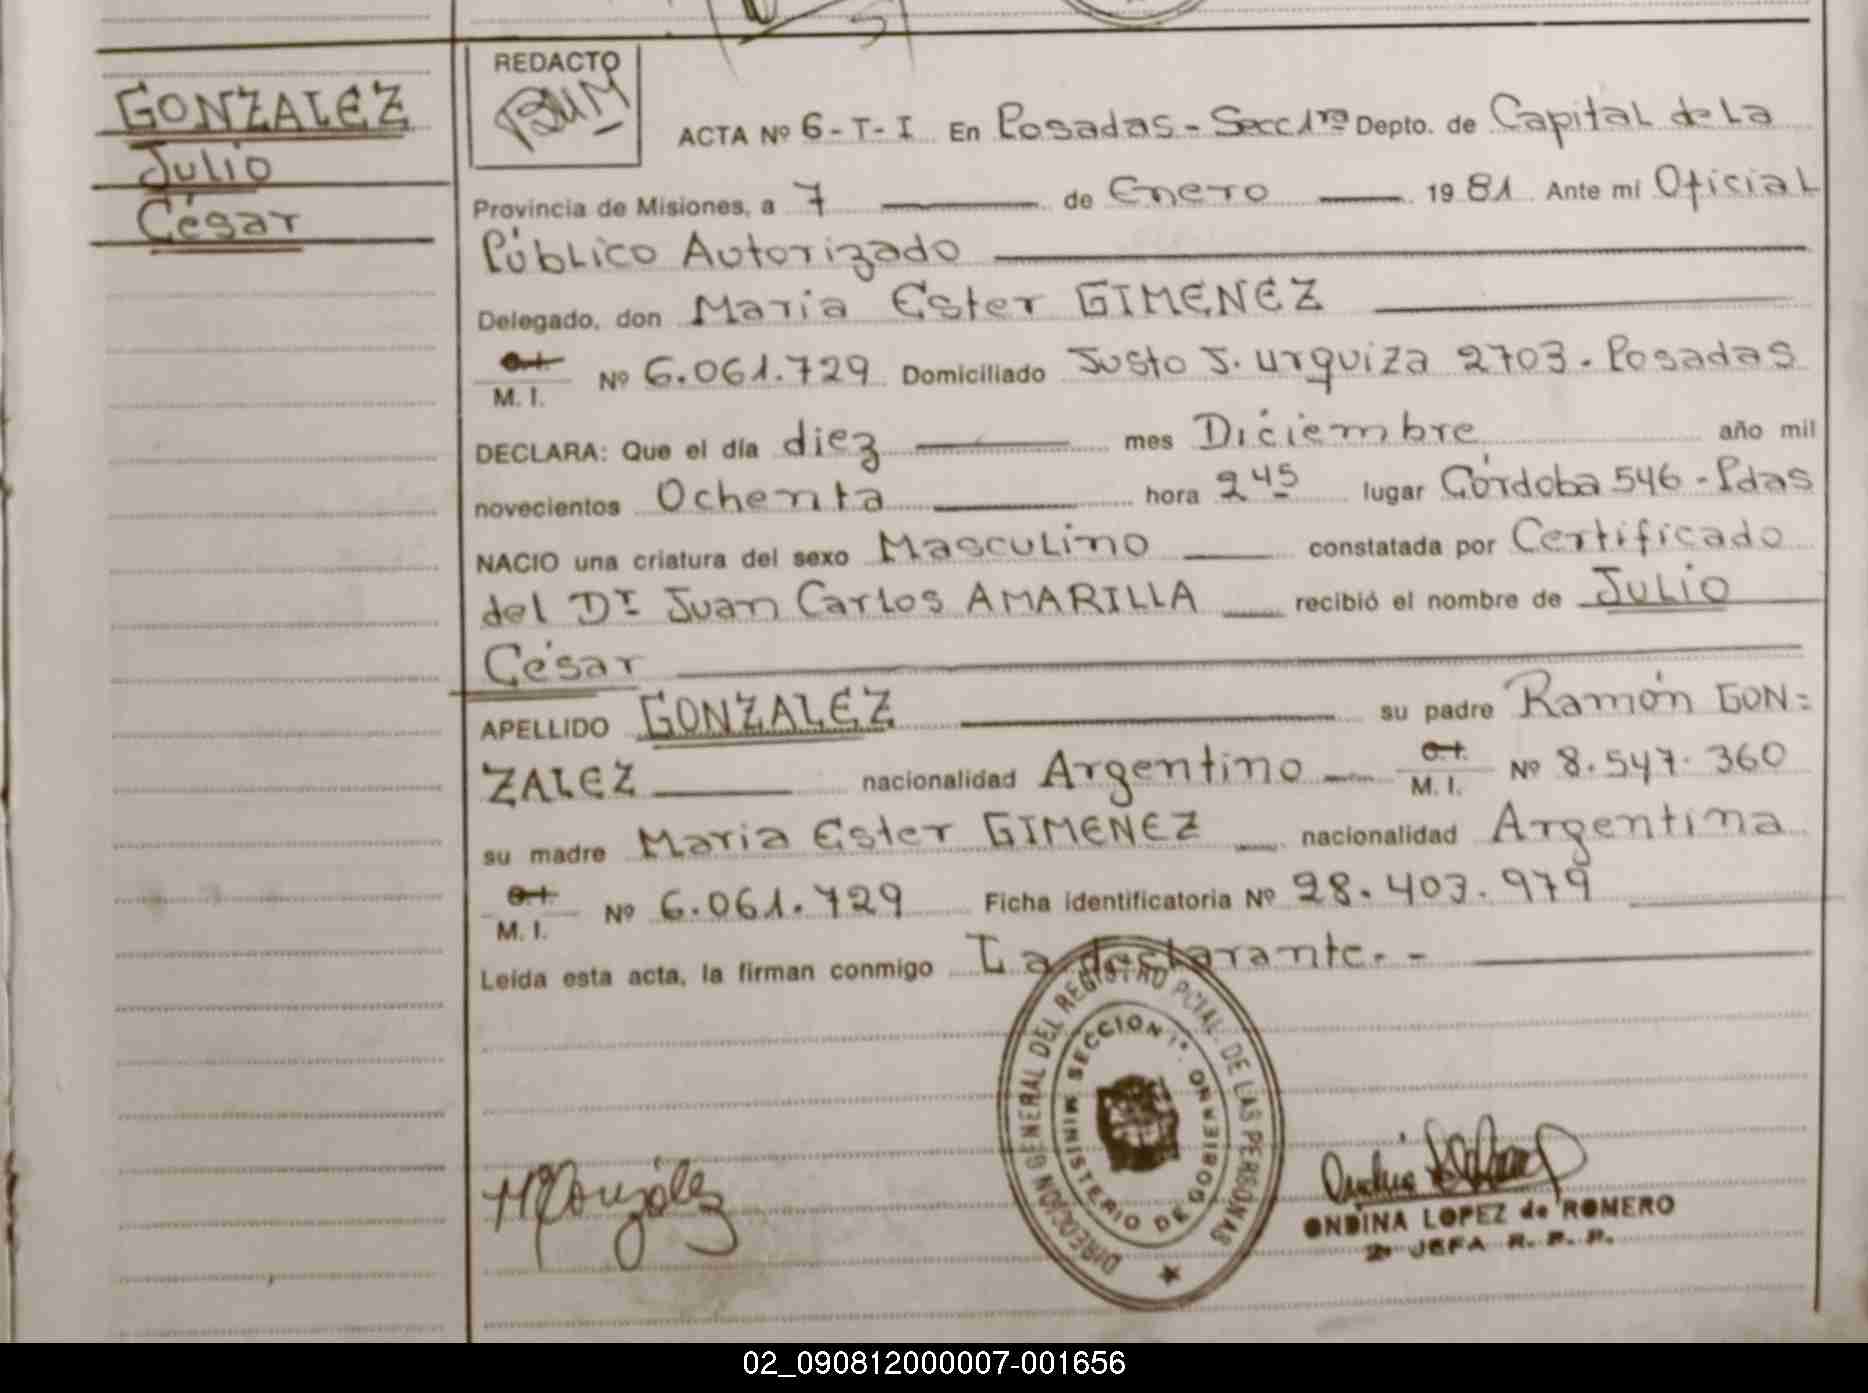 GONZALEZ
Julio
César
REDACTO
ACTA Nº 6-T-I En Posadas - Secc 1ra Depto. de Capital de La
Provincia de Misiones, a 7 de Enero 19 81. Ante mí Oficial
Público Autorizado
Delegado, don Maria Ester GIMENEZ
M. I. Nº 6.061.729 Domiciliado Justo J. Urquiza 2703. Posadas
DECLARA: Que el día diez mes Diciembre año mil
novecientos Ochenta hora 2 45 lugar Córdoba 546 - Pdas
NACIO una criatura del sexo Masculino constatada por Certificado
del Dr Juan Carlos AMARILLA recibió el nombre de Julio
César
APELLIDO GONZALEZ su padre Ramón GON=
ZALEZ nacionalidad Argentino M. I. Nº 8.547.360
su madre Maria Ester GIMENEZ nacionalidad Argentina
M. I. Nº 6.061.729 Ficha identificatoria Nº 28.403.979
Leída esta acta, la firman conmigo La declarante. -
DIRECCIÓN GENERAL DEL REGISTRO PCIAL. DE LAS PERSONAS
SECCION 1ª.
MINISTERIO DE GOBIERNO
ONDINA LOPEZ de ROMERO
2ª JEFA R. P. P.
02_090812000007-001656